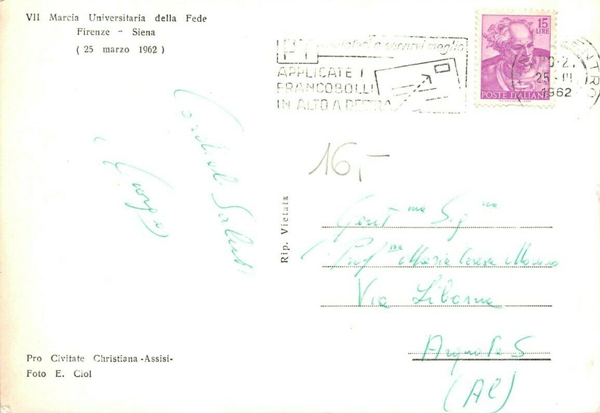 VII Marcia Universitaria della Fede
Firenze - Siena
( 25 marzo 1962 )
APPLICATE I
FRANCOBOLLI
IN ALTO A DESTRA
15
LIRE
POSTE ITALIANE
25 · III
1962
16,-
Cordiali Saluti
Rip. Vietata
Gent ma Sig na
Prof ssa Maria Teresa
Via Libarna
Arquata S
(Al)
Pro Civitate Christiana -Assisi-
Foto E. Ciol